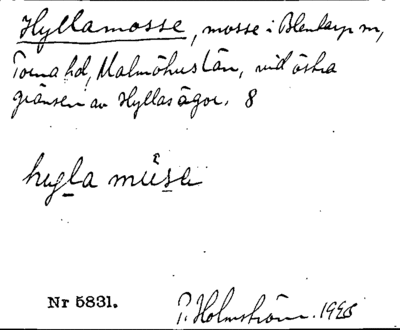 Hyllamosse, mosse i Blentarp sn,
Torna hd, Malmöhus län, vid östra
gränsen av Hyllas ägor. 8
hyla
Nr 5831. P. Holmström.